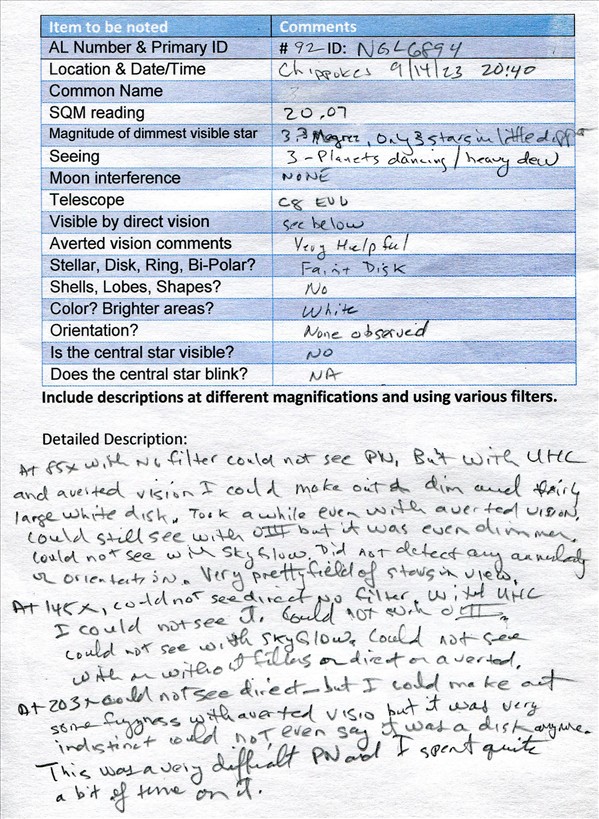 Item to be noted Comments
AL Number & Primary ID # 92 - ID: NGC6894
Location & Date/Time Chippokes 9/14/23 20:40
Common Name ?
SQM reading 20.07
Magnitude of dimmest visible star 3.3 Megrez, only 3 stars in little dipper
Seeing 3 - Planets dancing / heavy dew
Moon interference NONE
Telescope C8 EVO
Visible by direct vision see below
Averted vision comments Very Helpful
Stellar, Disk, Ring, Bi-Polar? Faint Disk
Shells, Lobes, Shapes? No
Color? Brighter areas? White
Orientation? None observed
Is the central star visible? NO
Does the central star blink? NA
Include descriptions at different magnifications and using various filters.
Detailed Description:
At 85x with No filter could not see PN, But with UHC
and averted vision I could make out a dim and fairly
large white disk. Took a while even with averted vision.
Could still see with OIII but it was even dimmer.
Could not see with SkyGlow. Did not detect any annularity
or orientation. Very pretty field of stars in view.
At 145x, could not see direct No filter, with UHC
I could not see it. Could not with OIII.
Could not see with SKYGLOW. Could not see
with or without filters or direct or averted.
At 203x could not see direct - but I could make out
some fuzzyness with averted visio but it was very
indistinct could not even say it was a disk anymore.
This was a very difficult PN and I spent quite
a bit of time on it.